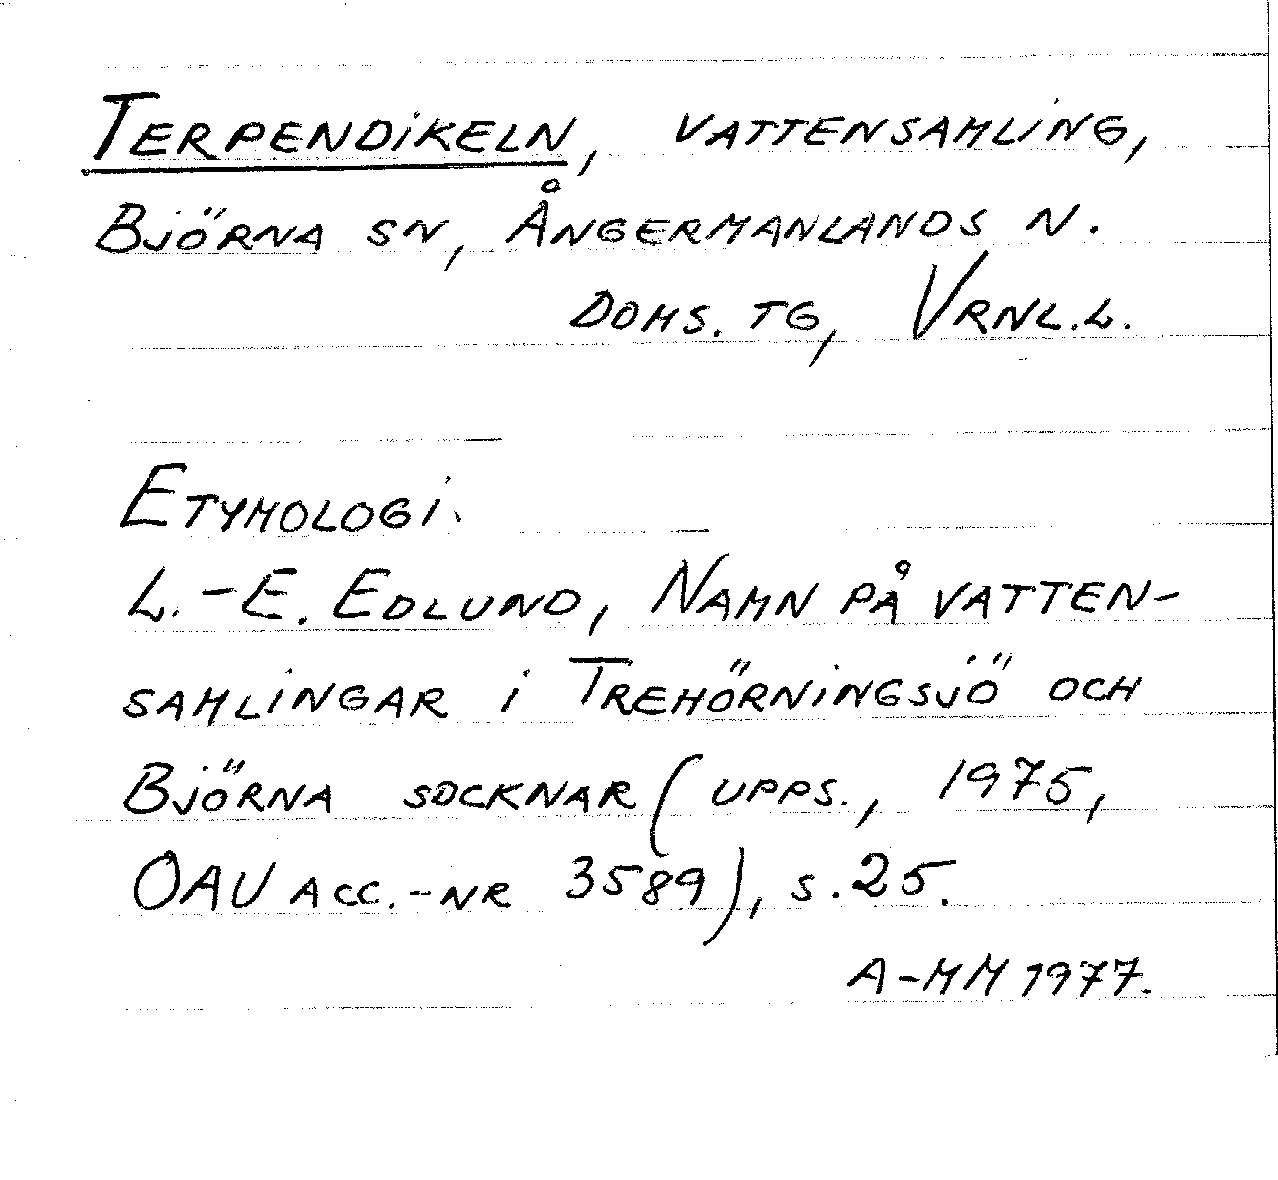 Terpendikeln, vattensamling,
Björna sn, Ångermanlands n.
doms. tg, Vrnl.l.
Etymologi.
L.-E. Edlund, Namn på vatten-
samlingar i Trehörningsjö och
Björna socknar (upps., 1975,
OAU acc.-nr 3589), s. 25.
A-MM 1977.